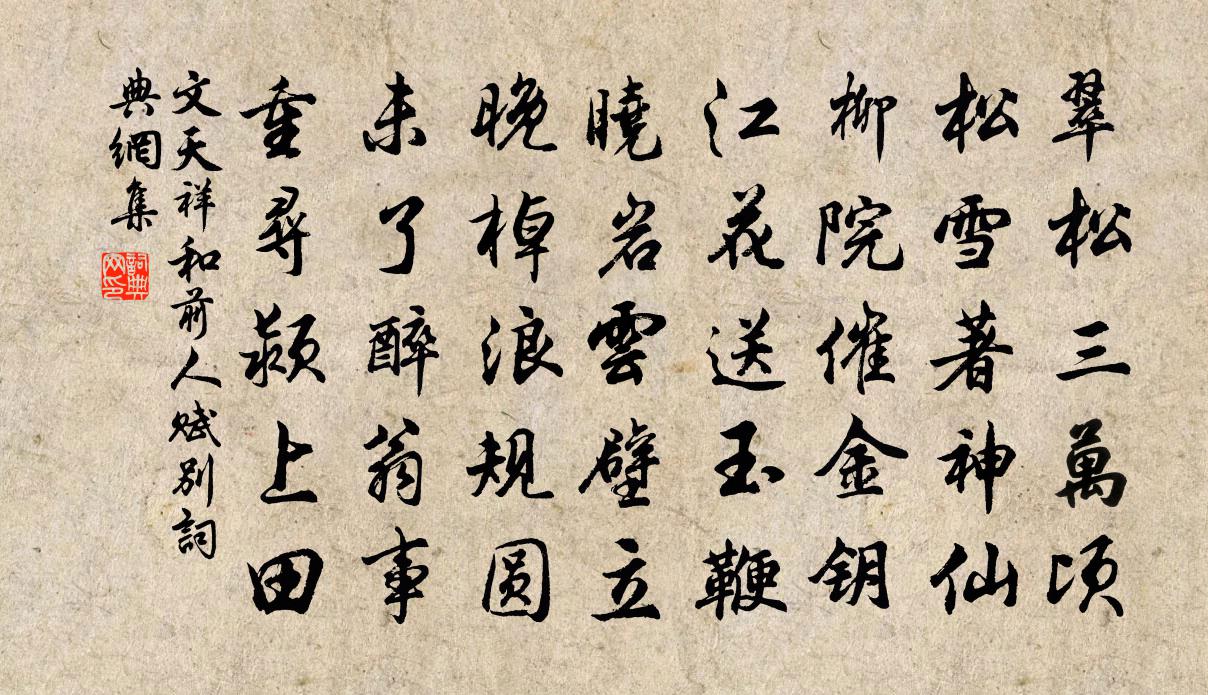 翠松三萬頃
松雪著神仙
柳院催金钥
江花送玉鞭
曉岩雲壁立
晚棹浪規圓
未了醉翁事
重尋潁上田
文天祥和前人赋別詞
典網集
詞典网印